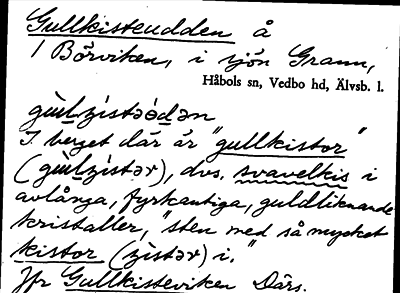 Gullkisteudden å
/ Börviken, i sjön Grann,
Håbols sn, Vedbo hd, Älvsb. l.
I berget där är "gullkistor"
dvs. svavelkis i
avlånga, fyrkantiga, guldliknande
kristaller, "sten med så mycket
kistor i."
Jfr Gullkisteviken Därs.